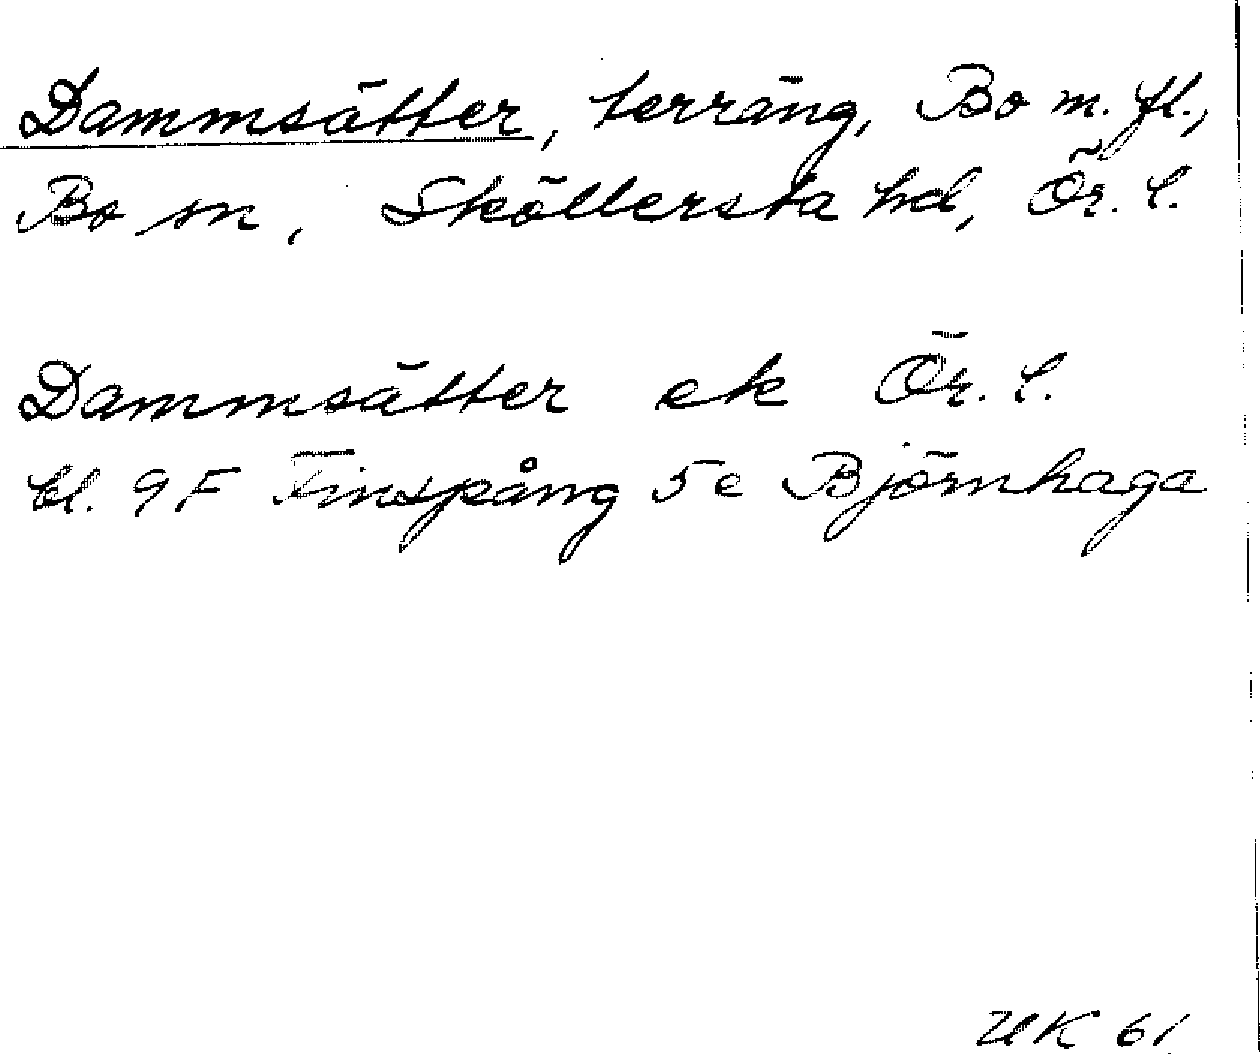 Dammsätter, terräng, Bo m. fl.,
Bo sn, Sköllersta hd, Ör. l.
Dammsätter ek Ör. l.
bl. 9F Finspång 5e Björnhaga
UK 61